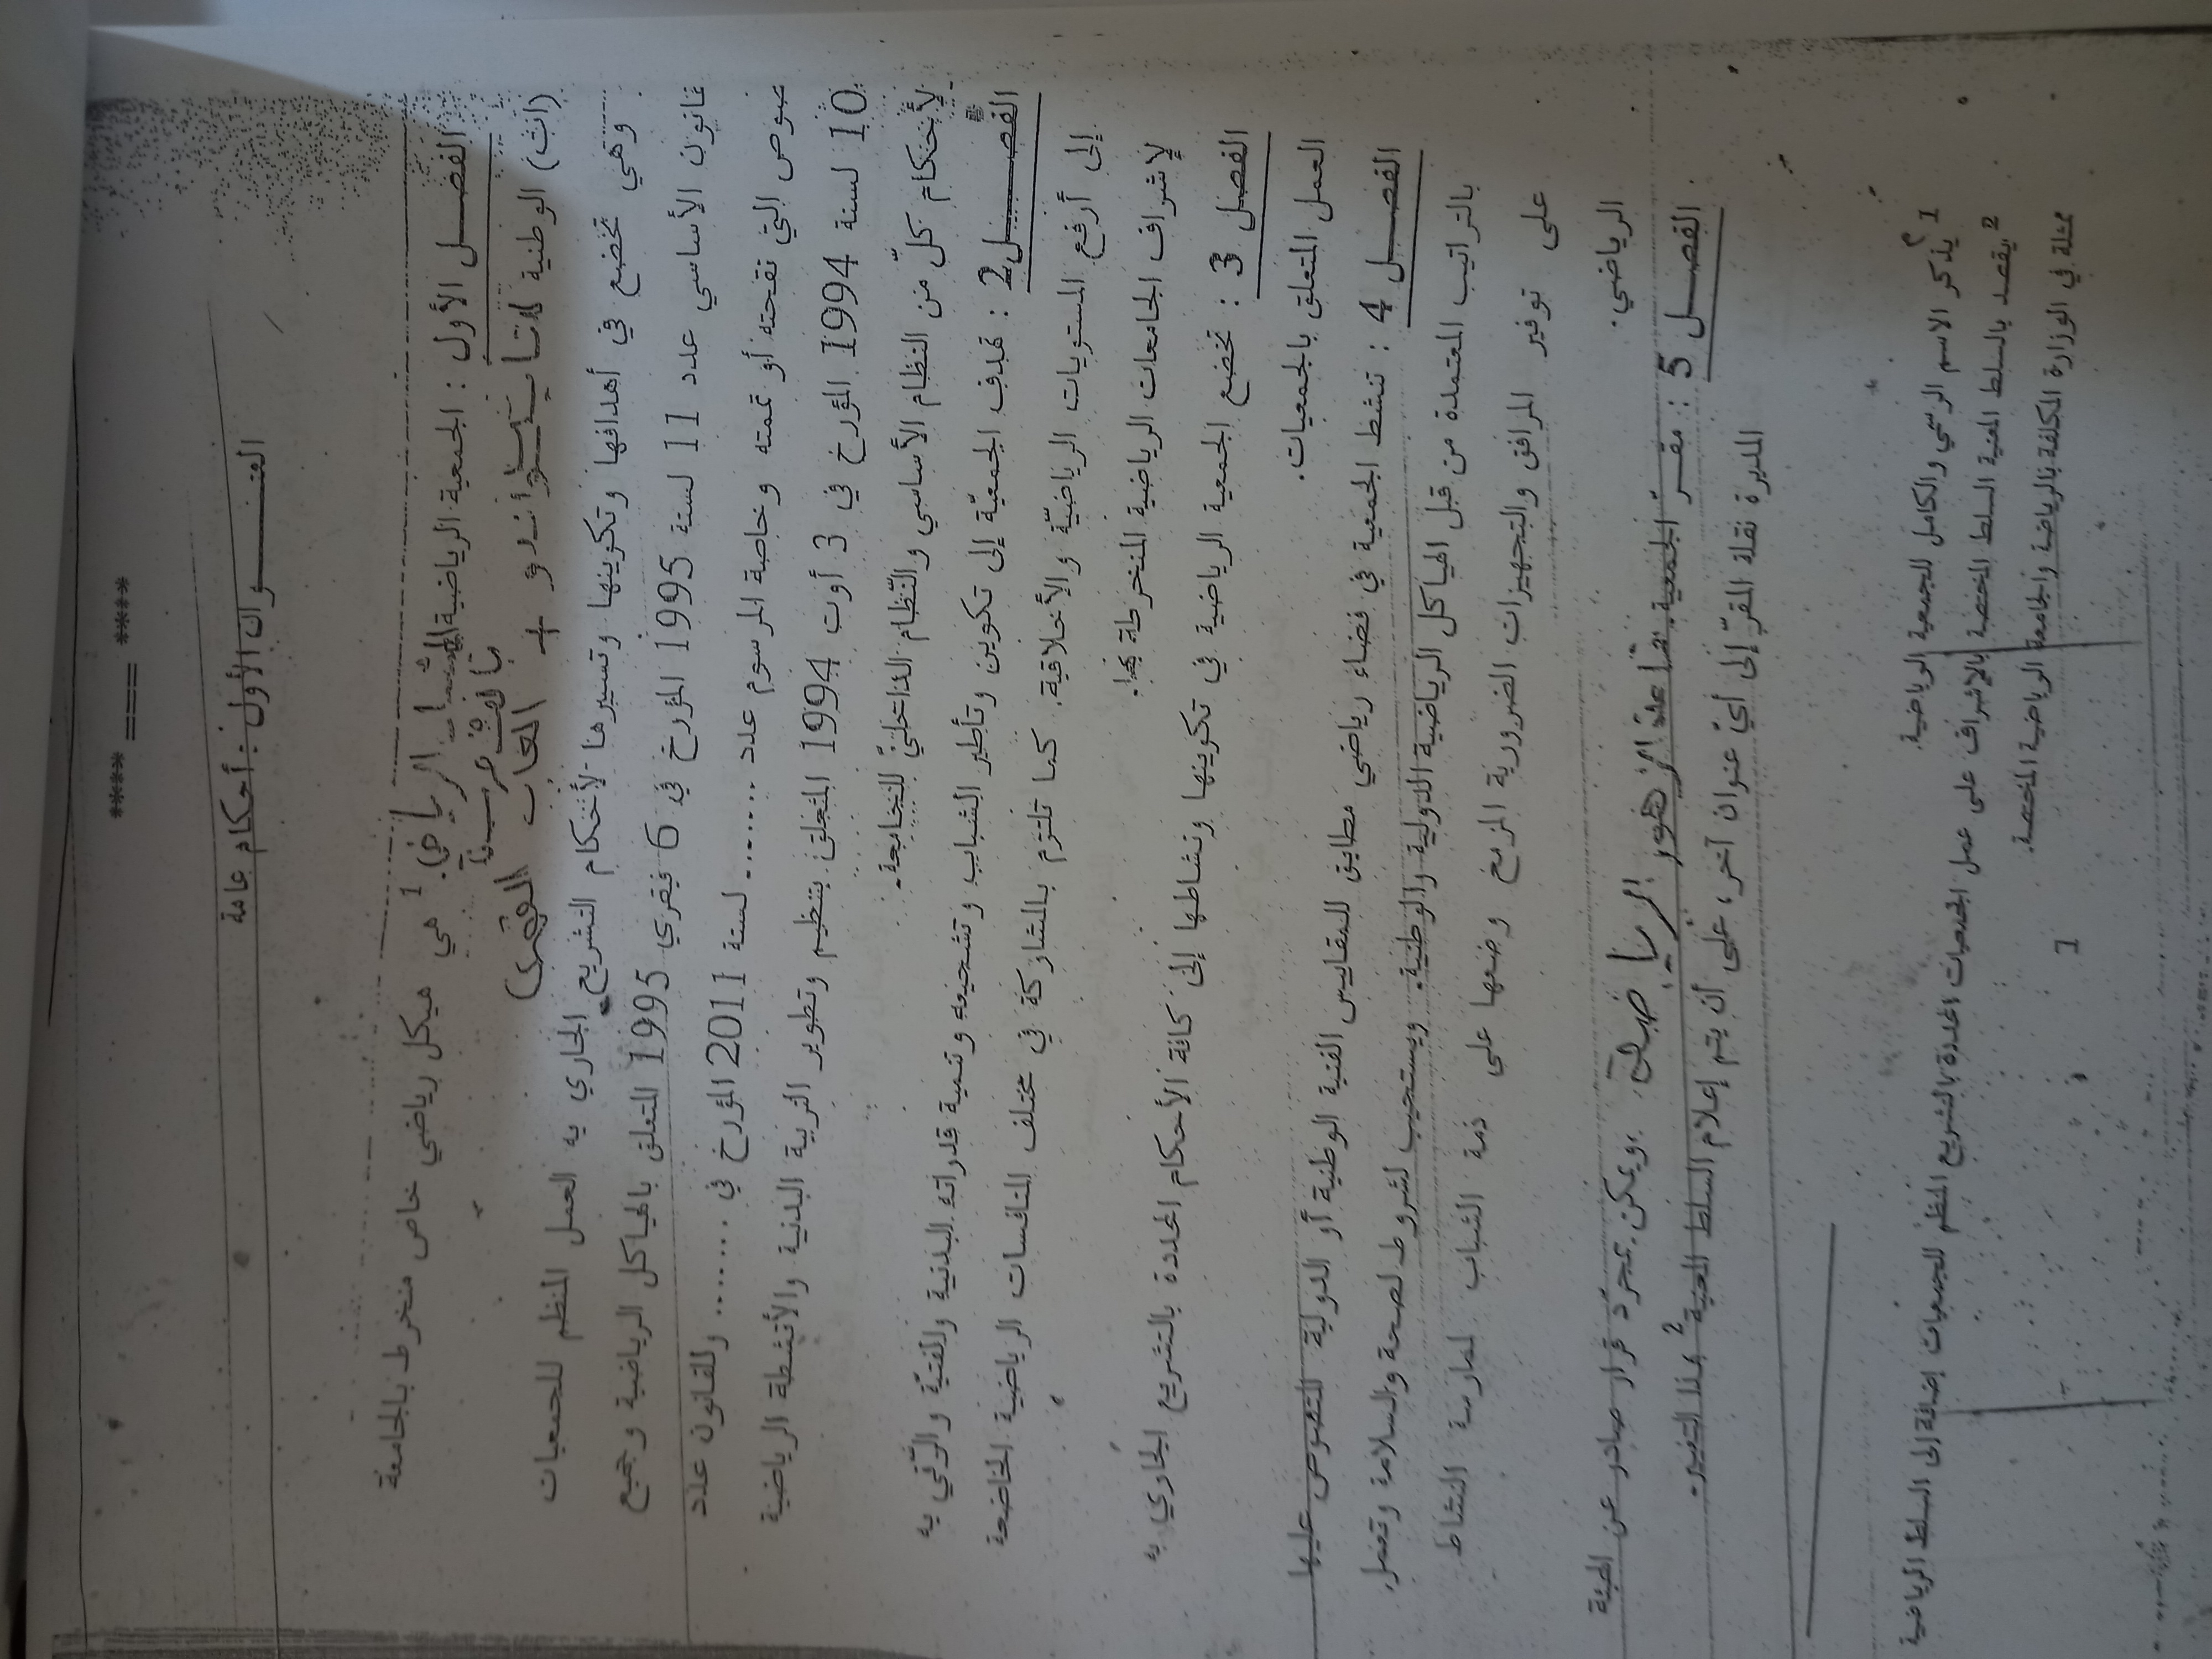 **** === ****
العنـــــوان الأول : أحكام عامة
الفصــل الأول : الجمعية الرياضية الشباب الرياضي 1 هي هيكل رياضي خاص منخرط بالجامعة
(ات) الوطنية + العاب القوى)
وهي تخضع في أهدافها وتكوينها وتسييرها لأحكام التشريع الجاري به العمل المنظم للجمعيات
قانون الأساسي عدد 11 لسنة 1995 المؤرخ في 6 فيفري 1995 المتعلق بالهياكل الرياضية وجميع
صوص التي نقحته أو تممته وخاصة المرسوم عدد ....... لسنة 2011 المؤرخ في ....... وللقانون عدد
10 لسنة 1994 المؤرخ في 3 أوت 1994 المتعلق بتنظيم وتطوير التربية البدنية والأنشطة الرياضية
لأحكام كلّ من النظام الأساسي والنّظام الداخليّ للجامعة.
الفصـــــل 2 : تهدف الجمعيّة إلى تكوين وتأطير الشباب وتشجيعه وتنمية قدراته البدنية والفنيّة والرّقي به
إلى أرفع المستويات الرياضيّة والأخلاقية. كما تلتزم بالمشاركة في مختلف المنافسات الرياضية الخاضعة
لإشراف الجامعات الرياضية المنخرطة بها.
الفصل 3 : تخضع الجمعية الرياضية في تكوينها ونشاطها إلى كافة الأحكام المحددة بالتشريع الجاري به
العمل المتعلق بالجمعيات.
الفصـــل 4 : تنشط الجمعية في فضاء رياضي مطابق للمقاييس الفنية الوطنية أو الدولية المنصوص عليها
بالتراتيب المعتمدة من قبل الهياكل الرياضية الدولية والوطنية. ويستجيب لشروط لصحة والسلامة وتعمل
على توفير المرافق والتجهيزات الضرورية المزمع وضعها على ذمة الشباب لممارسة النشاط
الرياضي.
الفصـــل 5 : مقـــر الجمعية: قاعة الزهور الرياضية .ويمكن بمجرّد قرار صادر عن الهيئة
المديرة نقلة المقرّ إلى أيّ عنوان آخر، على أن يتم إعلام السلط المعنية 2 بهذا التغيير.
1 يذكر الاسم الرسمي والكامل للجمعية الرياضية.
2 يقصد بالسلط المعنية السلط المختصة بالإشراف على عمل الجمعيات المحددة بالتشريع المنظم للجمعيات إضافة إلى السلط الرياضية
ممثلة في الوزارة المكلفة بالرياضة والجامعة الرياضية المختصة.
1